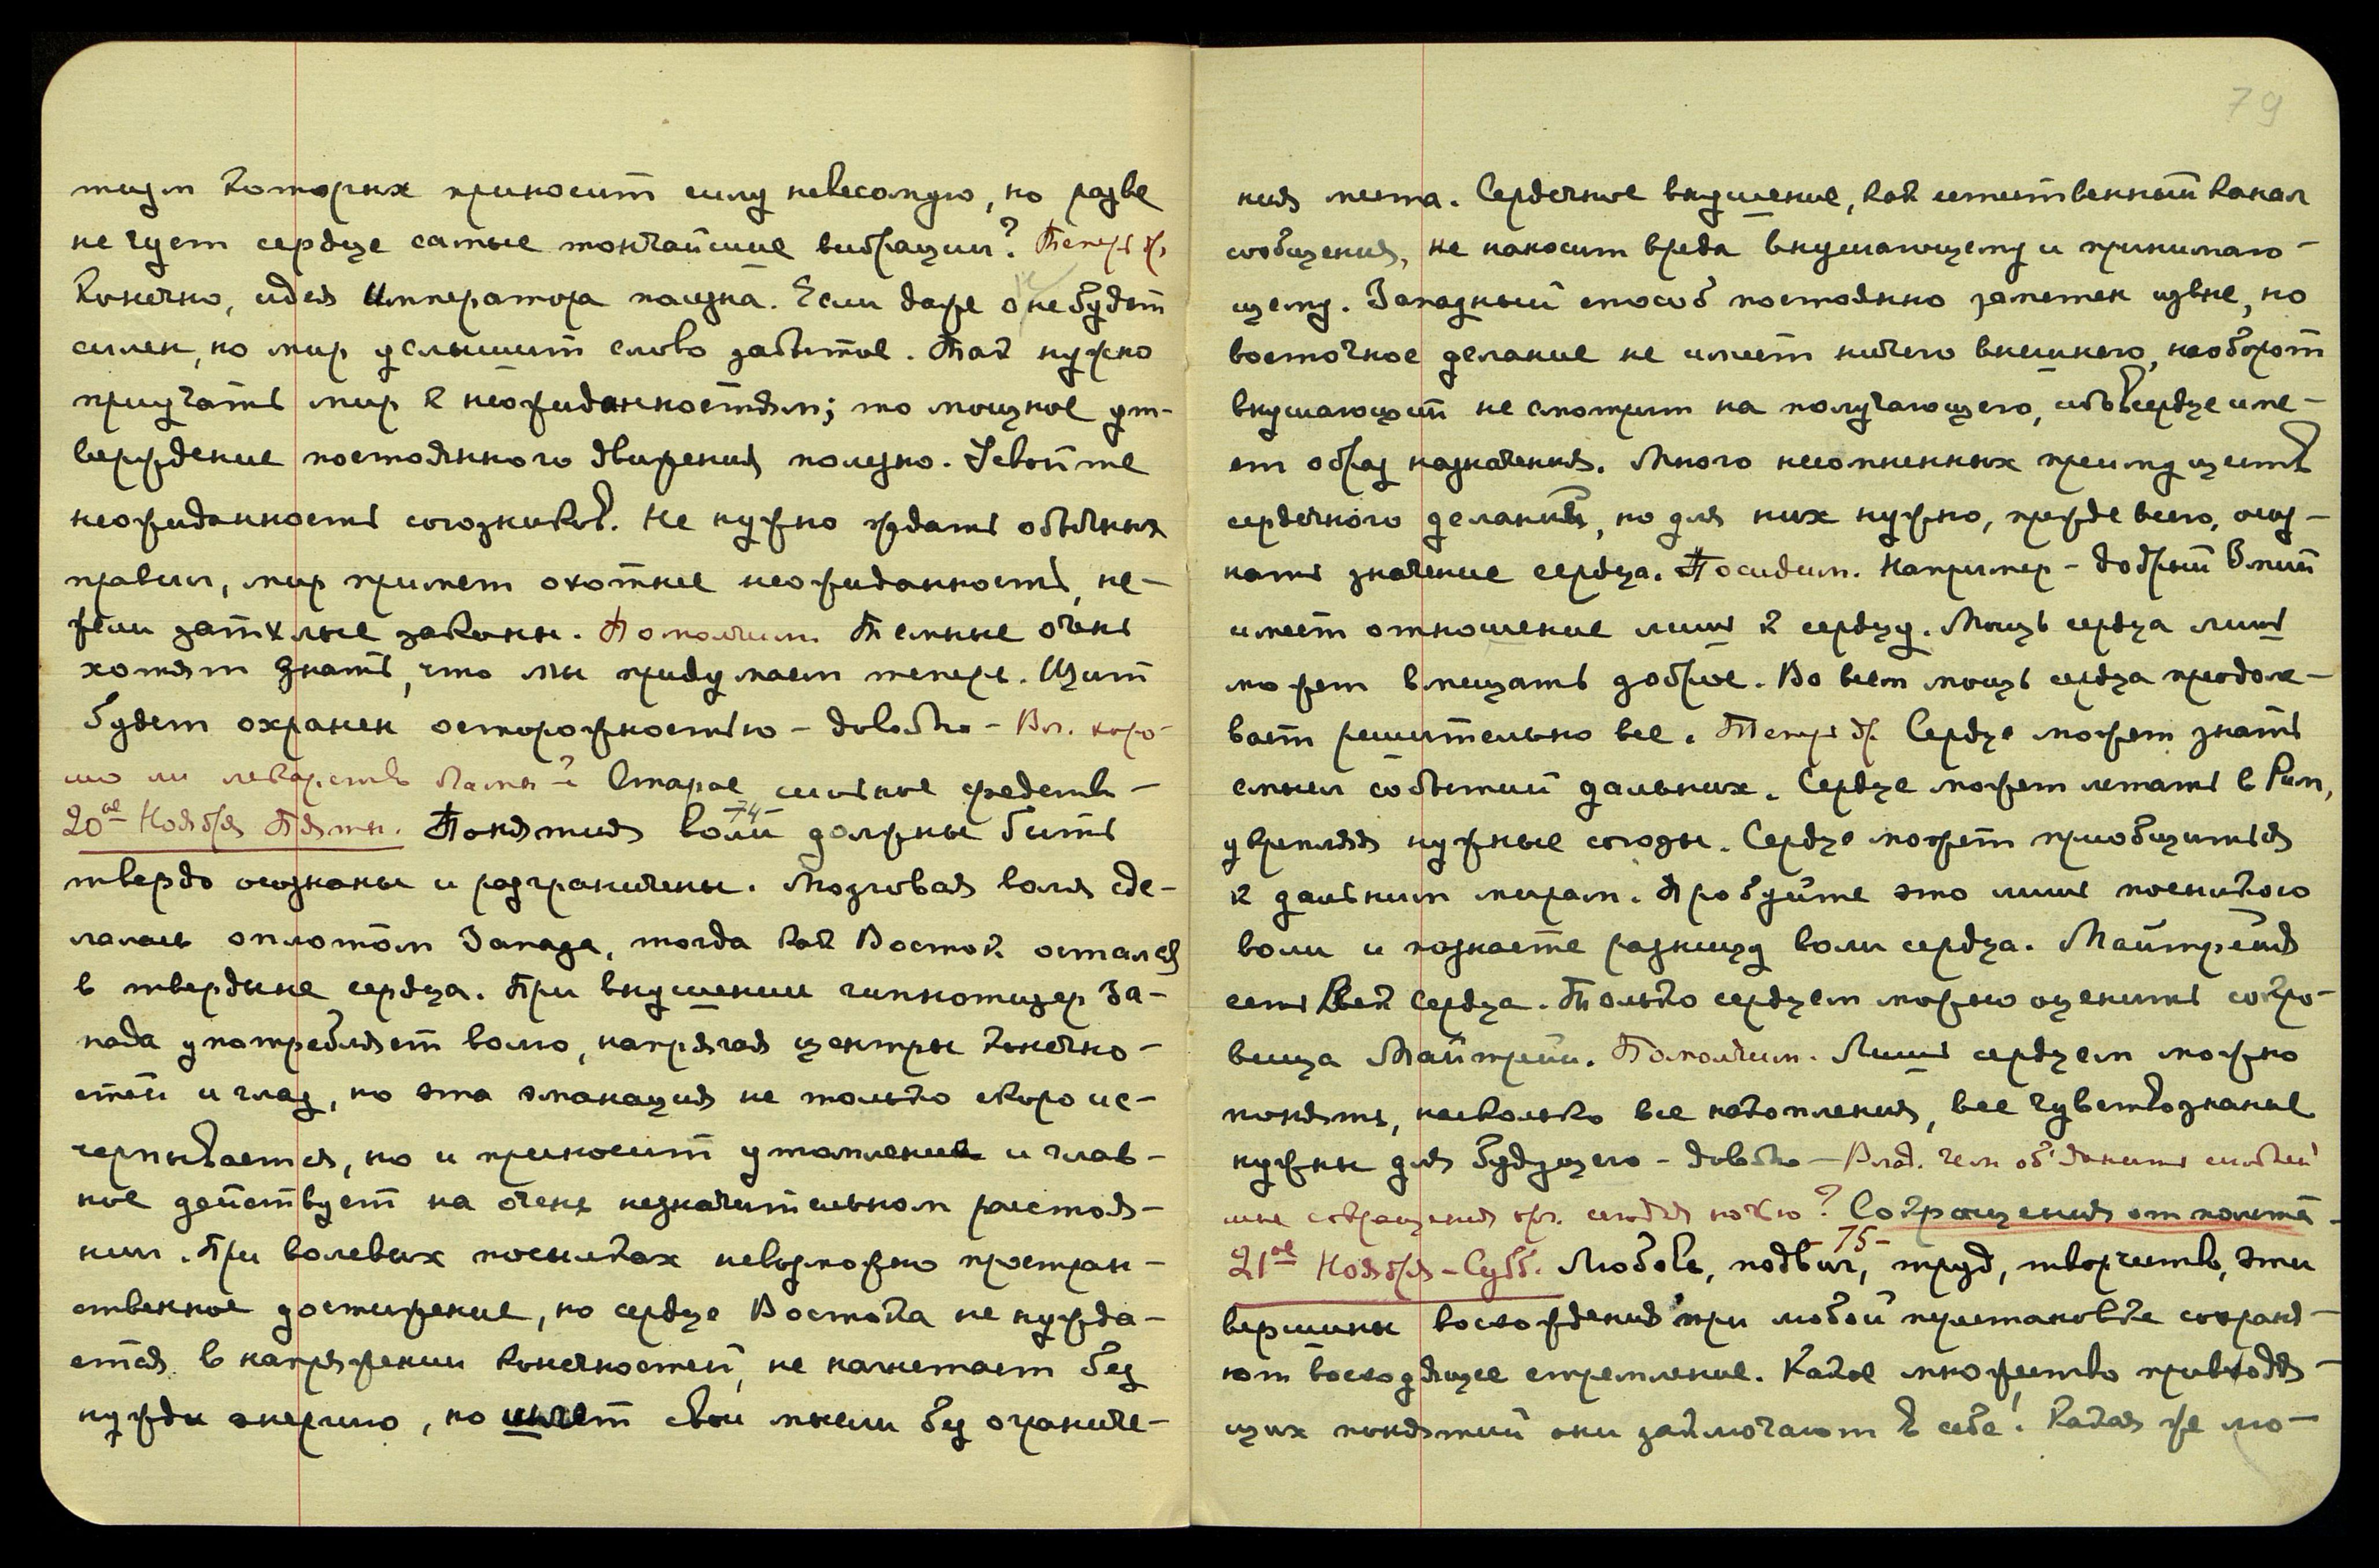 тизм которых приносит силу невесомую, но разве
не чует сердце самые тончайшие вибрации? Теперь др.
Конечно, идея Императора полезна. Если даже он не будет
силен, но мир услышит слово забытое. Так нужно
приучать мир к неожиданностям; то мощное ут-
верждение постоянного движения полезно. Усвойте
неожиданность союзников. Не нужно ждать обычных
правил, мир примет охотнее неожиданность, не-
жели затхлые законы. Помолчим Темные очень
хотят знать, что мы придумаем теперь. Щит
будет охранен осторожностью – довольно – Вл. хоро-
шо ли лекарство Ламы? Старое сильное средство –
20ое Ноября Пятн. –74– Понятия воли должны быть
твердо осознаны и разграничены. Мозговая воля сде-
лалась оплотом Запада, тогда как Восток остался
в твердыне сердца. При внушении гипнотизер За-
пада употребляет волю, напрягая центры конечно-
стей и глаз, но эта эманация не только скоро ис-
черпывается, но и приносит утомление и глав-
ное действует на очень незначительном расстоя-
нии. При волевых посылках невозможно простран-
ственное достижение, но сердце Востока не нужда-
ется в напряжении конечностей, не нагнетает без
нужды энергию, но шлет свои мысли без ограниче-
79
ния места. Сердечное внушение, как естественный канал
сообщения, не наносит вреда внушающему и принимаю-
щему. Западный способ постоянно заметен извне, но
восточное делание не имеет ничего внешнего, наоборот
внушающий не смотрит на получающего, ибо в сердце име-
ет образ назначения. Много несомненных преимуществ
сердечного делания, но для них нужно, прежде всего, осоз-
нать значение сердца. Посидим. Например – добрый Змий
имеет отношение лишь к сердцу. Мощь сердца лишь
может вмещать доброе. Во всем мощь сердца преодоле-
вает решительно все. Теперь др. Сердце может знать
смысл событий дальних. Сердце может летать в Рим,
укрепляя нужные союзы. Сердце может приобщиться
к дальним мирам. Пробуйте это лишь посылкою
воли и познаете разницу воли сердца. Майтрейя
есть Век Сердца. Только сердцем можно оценить сокро-
вища Майтрейи. Помолчим. Лишь сердцем можно
понять, насколько все накопления, все чувствознание
нужны для будущего – довольно – Влад. чем об'яснить
мне сокращения ночью? Сокращения от полета –
21ое Ноября – Субб. –75– Любовь, подвиг, труд, творчество, эти
вершины восхождения при любой перестановке сохраня-
ют восходящее стремление. Какое множество привходя-
щих понятий они заключают в себе! Какая же лю-